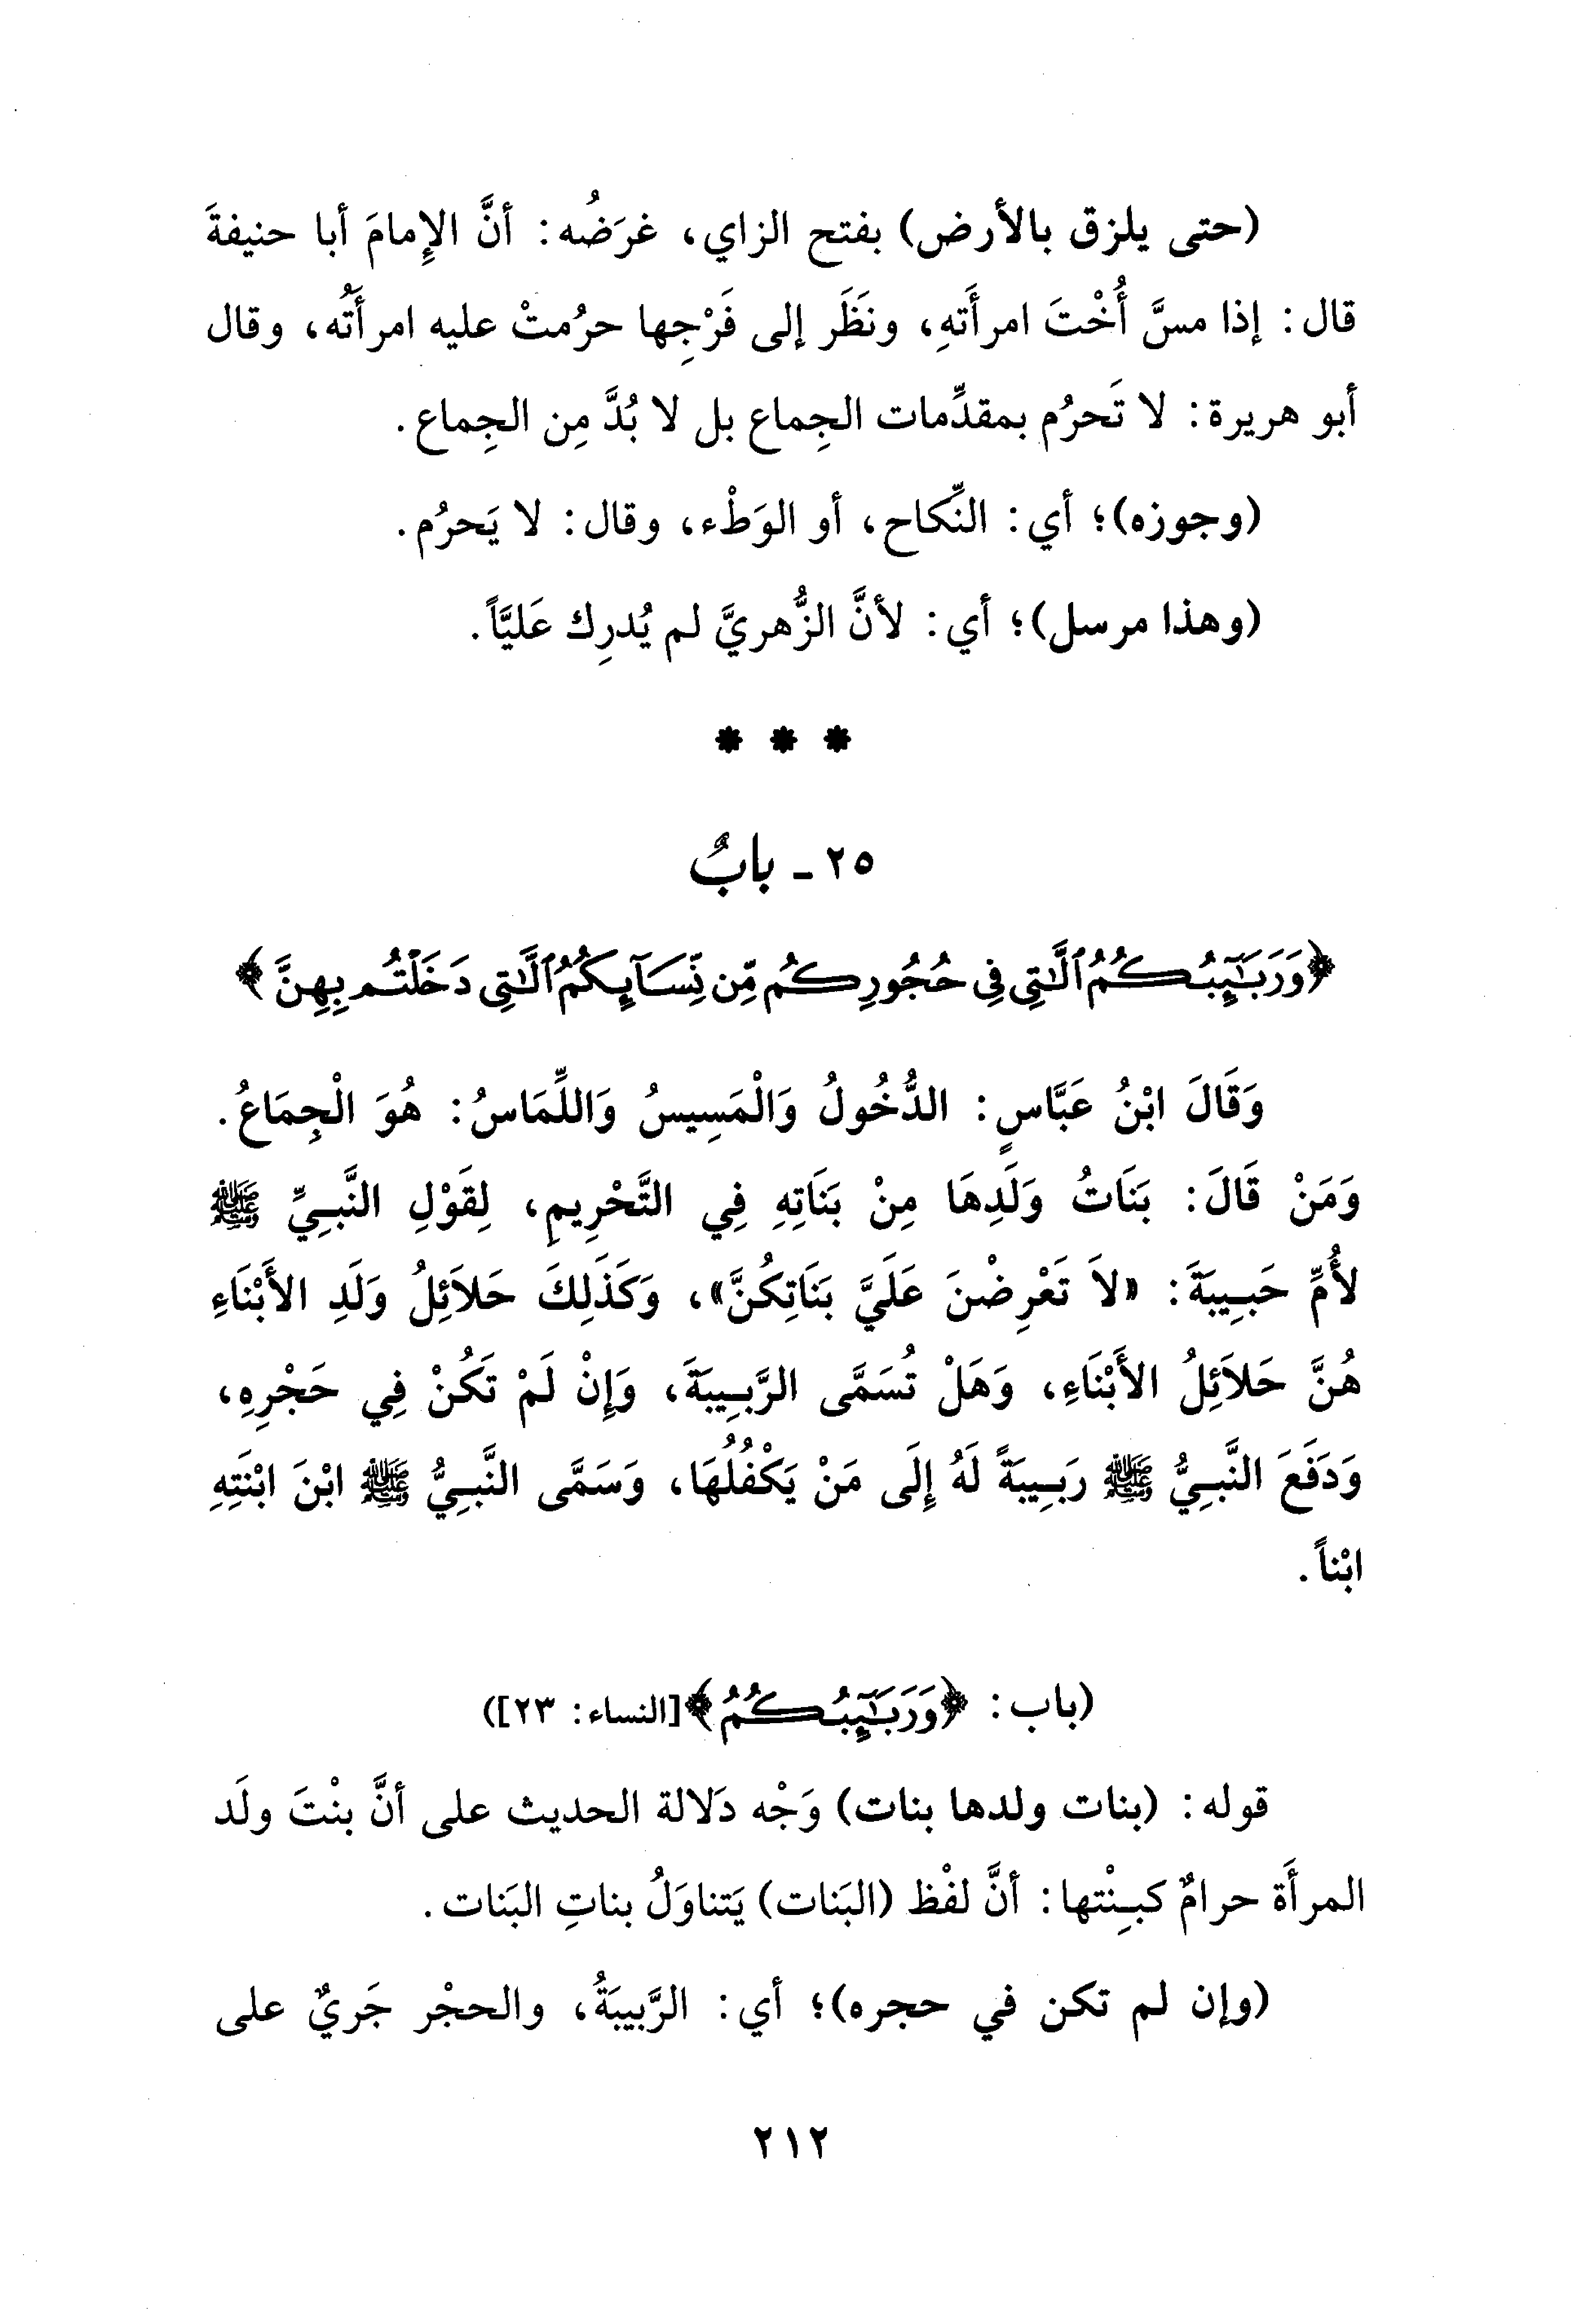 (حتى يلزق بالأرض) بفتح الزاي، غرَضُه: أنَّ الإمامَ أبا حنيفةَ
قال: إذا مسَّ أُخْتَ امرأَتهِ، ونظَر إلى فَرْجِها حرُمتْ عليه امرأَتُه، وقال
أبو هريرة: لا تَحرُم بمقدِّمات الجِماع بل لا بُدَّ مِن الجِماع.
(وجوزه)؛ أي: النِّكاح، أو الوَطْء، وقال: لا يَحرُم.
(وهذا مرسل)؛ أي: لأنَّ الزُّهريَّ لم يُدرِك عَليَّاً.
* * *
٢٥ - بابٌ
﴿وَرَبَٰٓئِبُكُمُ ٱلَّٰتِى فِى حُجُورِكُم مِّن نِّسَآئِكُمُ ٱلَّٰتِى دَخَلْتُم بِهِنَّ﴾
وَقَالَ ابْنُ عَبَّاسٍ: الدُّخُولُ وَالْمَسِيسُ وَاللِّمَاسُ: هُوَ الْجِمَاعُ.
وَمَنْ قَالَ: بَنَاتُ وَلَدِهَا مِنْ بَنَاتِهِ فِي التَّحْرِيمِ، لِقَوْلِ النَّبِيِّ ﷺ
لأُمِّ حَبِيبَةَ: «لاَ تَعْرِضْنَ عَلَيَّ بَنَاتِكُنَّ»، وَكَذَلِكَ حَلاَئِلُ وَلَدِ الأَبْنَاءِ
هُنَّ حَلاَئِلُ الأَبْنَاءِ، وَهَلْ تُسَمَّى الرَّبِيبَةَ، وَإِنْ لَمْ تَكُنْ فِي حَجْرِهِ،
وَدَفَعَ النَّبِيُّ ﷺ رَبِيبَةً لَهُ إِلَى مَنْ يَكْفُلُهَا، وَسَمَّى النَّبِيُّ ﷺ ابْنَ ابْنَتِهِ
ابْناً.
(باب: ﴿وَرَبَٰٓئِبُكُمُ﴾[النساء: ٢٣])
قوله: (بنات ولدها بنات) وَجْه دَلالة الحديث على أنَّ بنْتَ ولَد
المرأَة حرامٌ كبِنْتها: أنَّ لفْظ (البَنات) يَتناوَلُ بناتِ البَنات.
(وإن لم تكن في حجره)؛ أي: الرَّبيبَةُ، والحجْر جَريٌ على
٢١٢